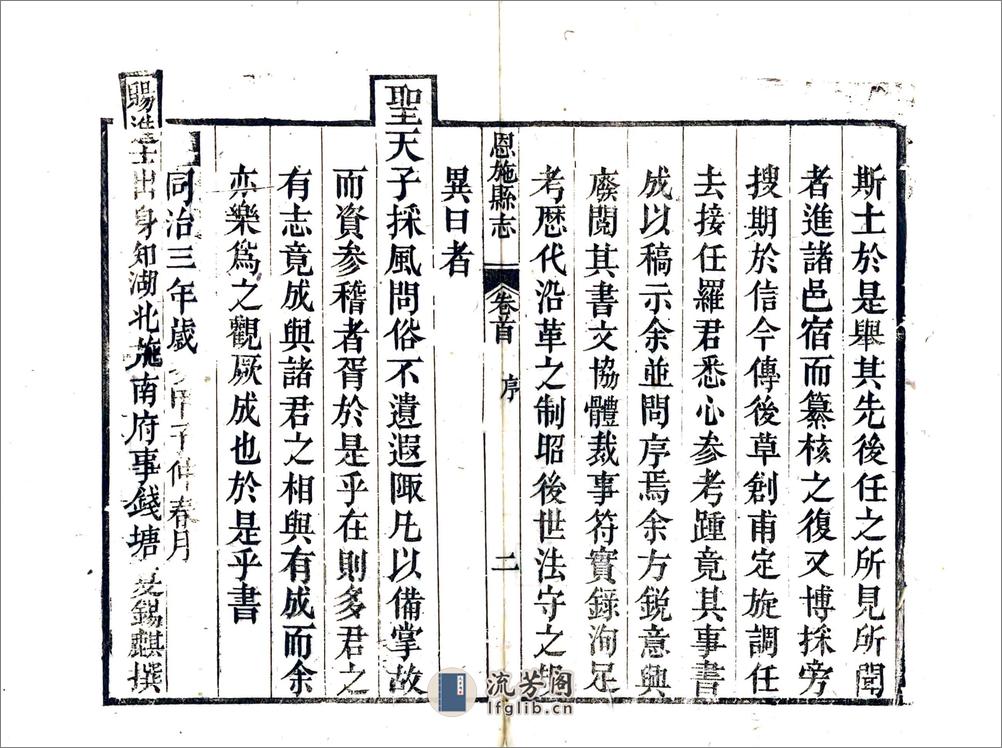 斯土於是舉其先後任之所見所聞
者進諸邑宿而纂核之復又博採旁
搜期於信今傳後草創甫定旋調任
去接任羅君悉心參考踵竟其事書
成以稿示余並問序焉余方銳意興
廢閱其書文協體裁事符實錄洵足
考歷代沿革之制昭後世法守之
恩施縣志 卷首 序 二
異日者
聖天子採風問俗不遺遐陬凡以備掌故
而資參稽者胥於是乎在則多君之
有志竟成與諸君之相與有成而余
亦樂爲之觀厥成也於是乎書
同治三年歲次甲子仲春月
賜進士出身知湖北施南府事錢塘 錫麒撰
流芳阁
lfglib.cn